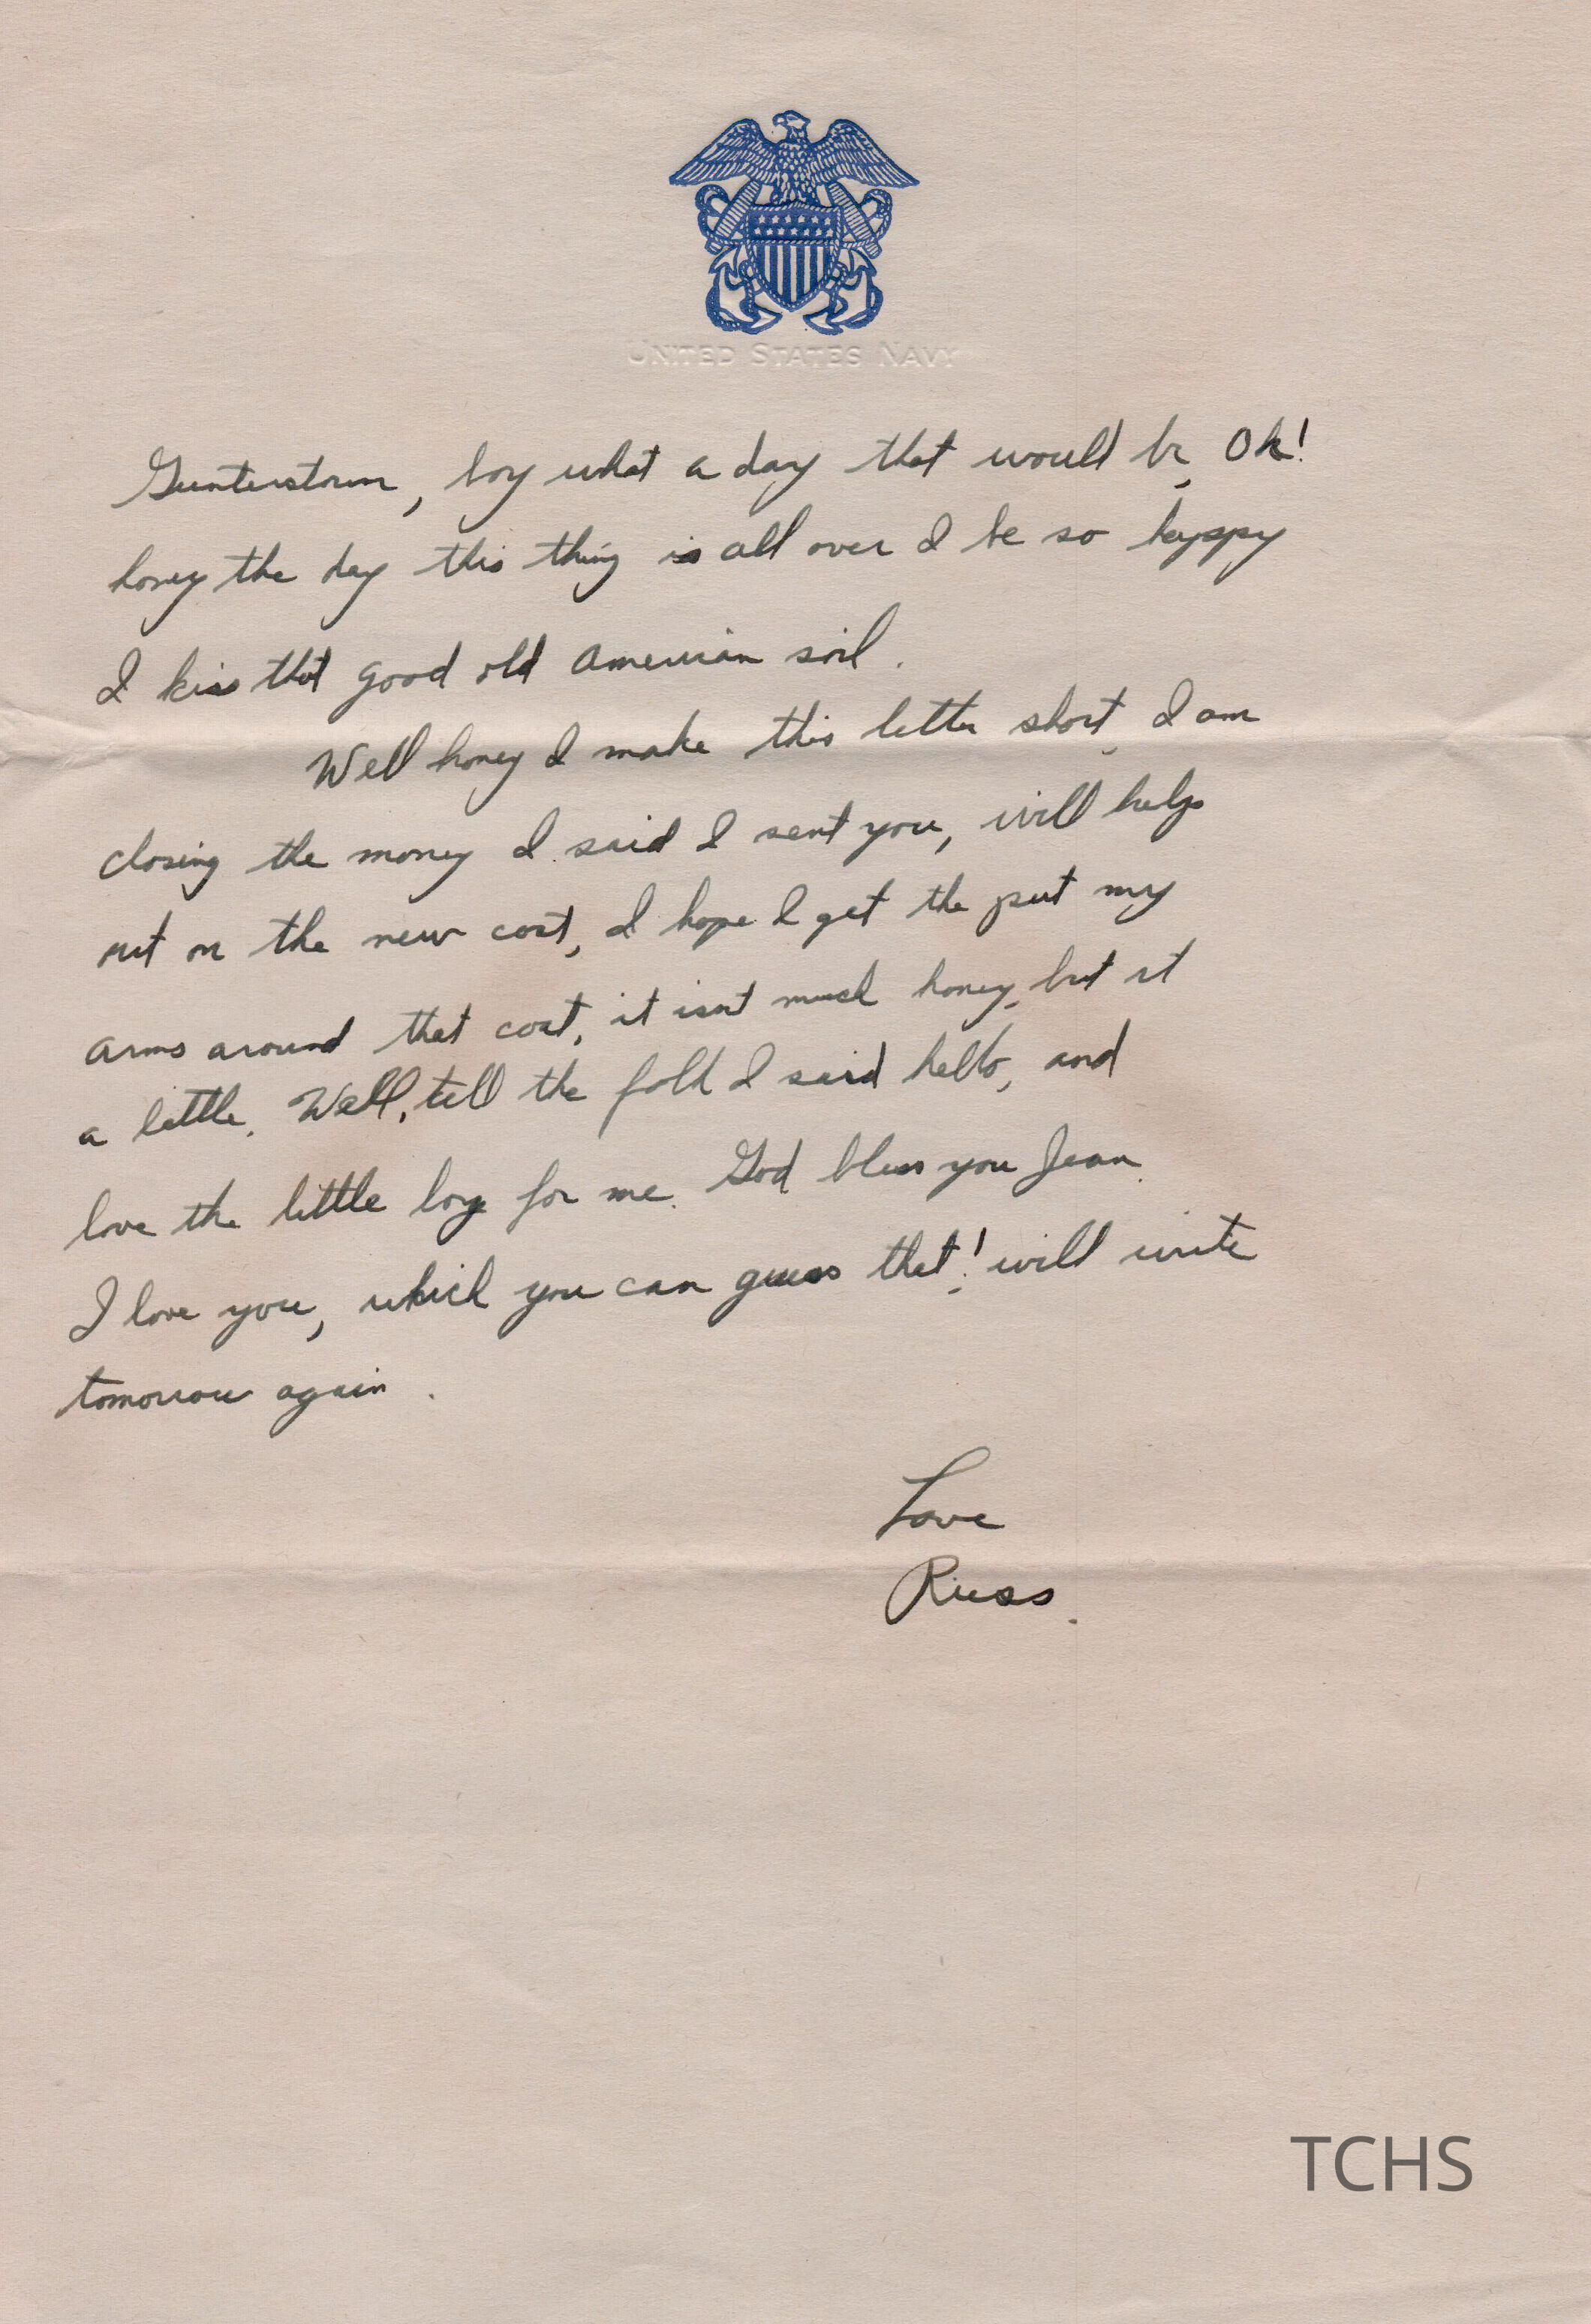 UNITED STATES NAVY
Gunterstown, boy what a day that would be, Oh!
honey the day this thing is all over I be so happy
I kiss that good old American soil.
Well honey I make this letter short, I am
closing the money I said I sent you, will help
out on the new coat, I hope I get the put my
arms around that coat, it isnt much honey, but it
a little. Well, tell the folk I said hello, and
love the little boy for me. God bless you Jean.
I love you, which you can guess that! will write
tomorrow again.
Love
Russ.
TCHS